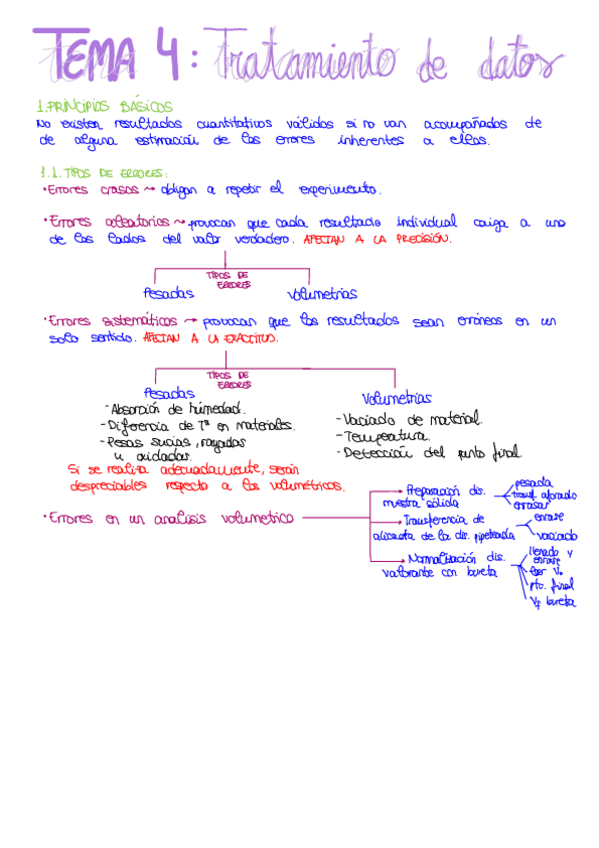 TEMA 4: Tratamiento de datos
1. PRINCIPIOS BÁSICOS
No existen resultados cuantitativos válidos si no van acompañados de
de alguna estimación de los errores inherentes a ellos.
1.1. TIPOS DE ERRORES:
· Errores crasos → obligan a repetir el experimento.
· Errores aleatorios → provocan que cada resultado individual caiga a uno
de los lados del valor verdadero. AFECTAN A LA PRECISIÓN.
TIPOS DE
ERRORES
Pesadas
Volumetrías
· Errores sistemáticos → provocan que los resultados sean erróneos en un
solo sentido. AFECTAN A LA EXACTITUD.
TIPOS DE
ERRORES
Pesadas
- Absorción de humedad.
- Diferencia de Tª en materiales.
- Pesas sucias, rayadas
u oxidadas.
Volumetrías
- Vaciado de material.
- Temperatura.
- Detección del punto final.
Si se realiza adecuadamente, serán
despreciables respecto a los volumétricos.
· Errores en un análisis volumétrico
Preparación dis.
muestra sólida
pesada
transf. aforado
enrasar
Transferencia de
alícuota de la dis. pipeteada
enrase
vaciado
Normalización dis.
valorante con bureta
llenado y
enrase
leer V₀
pto. final
Vf bureta